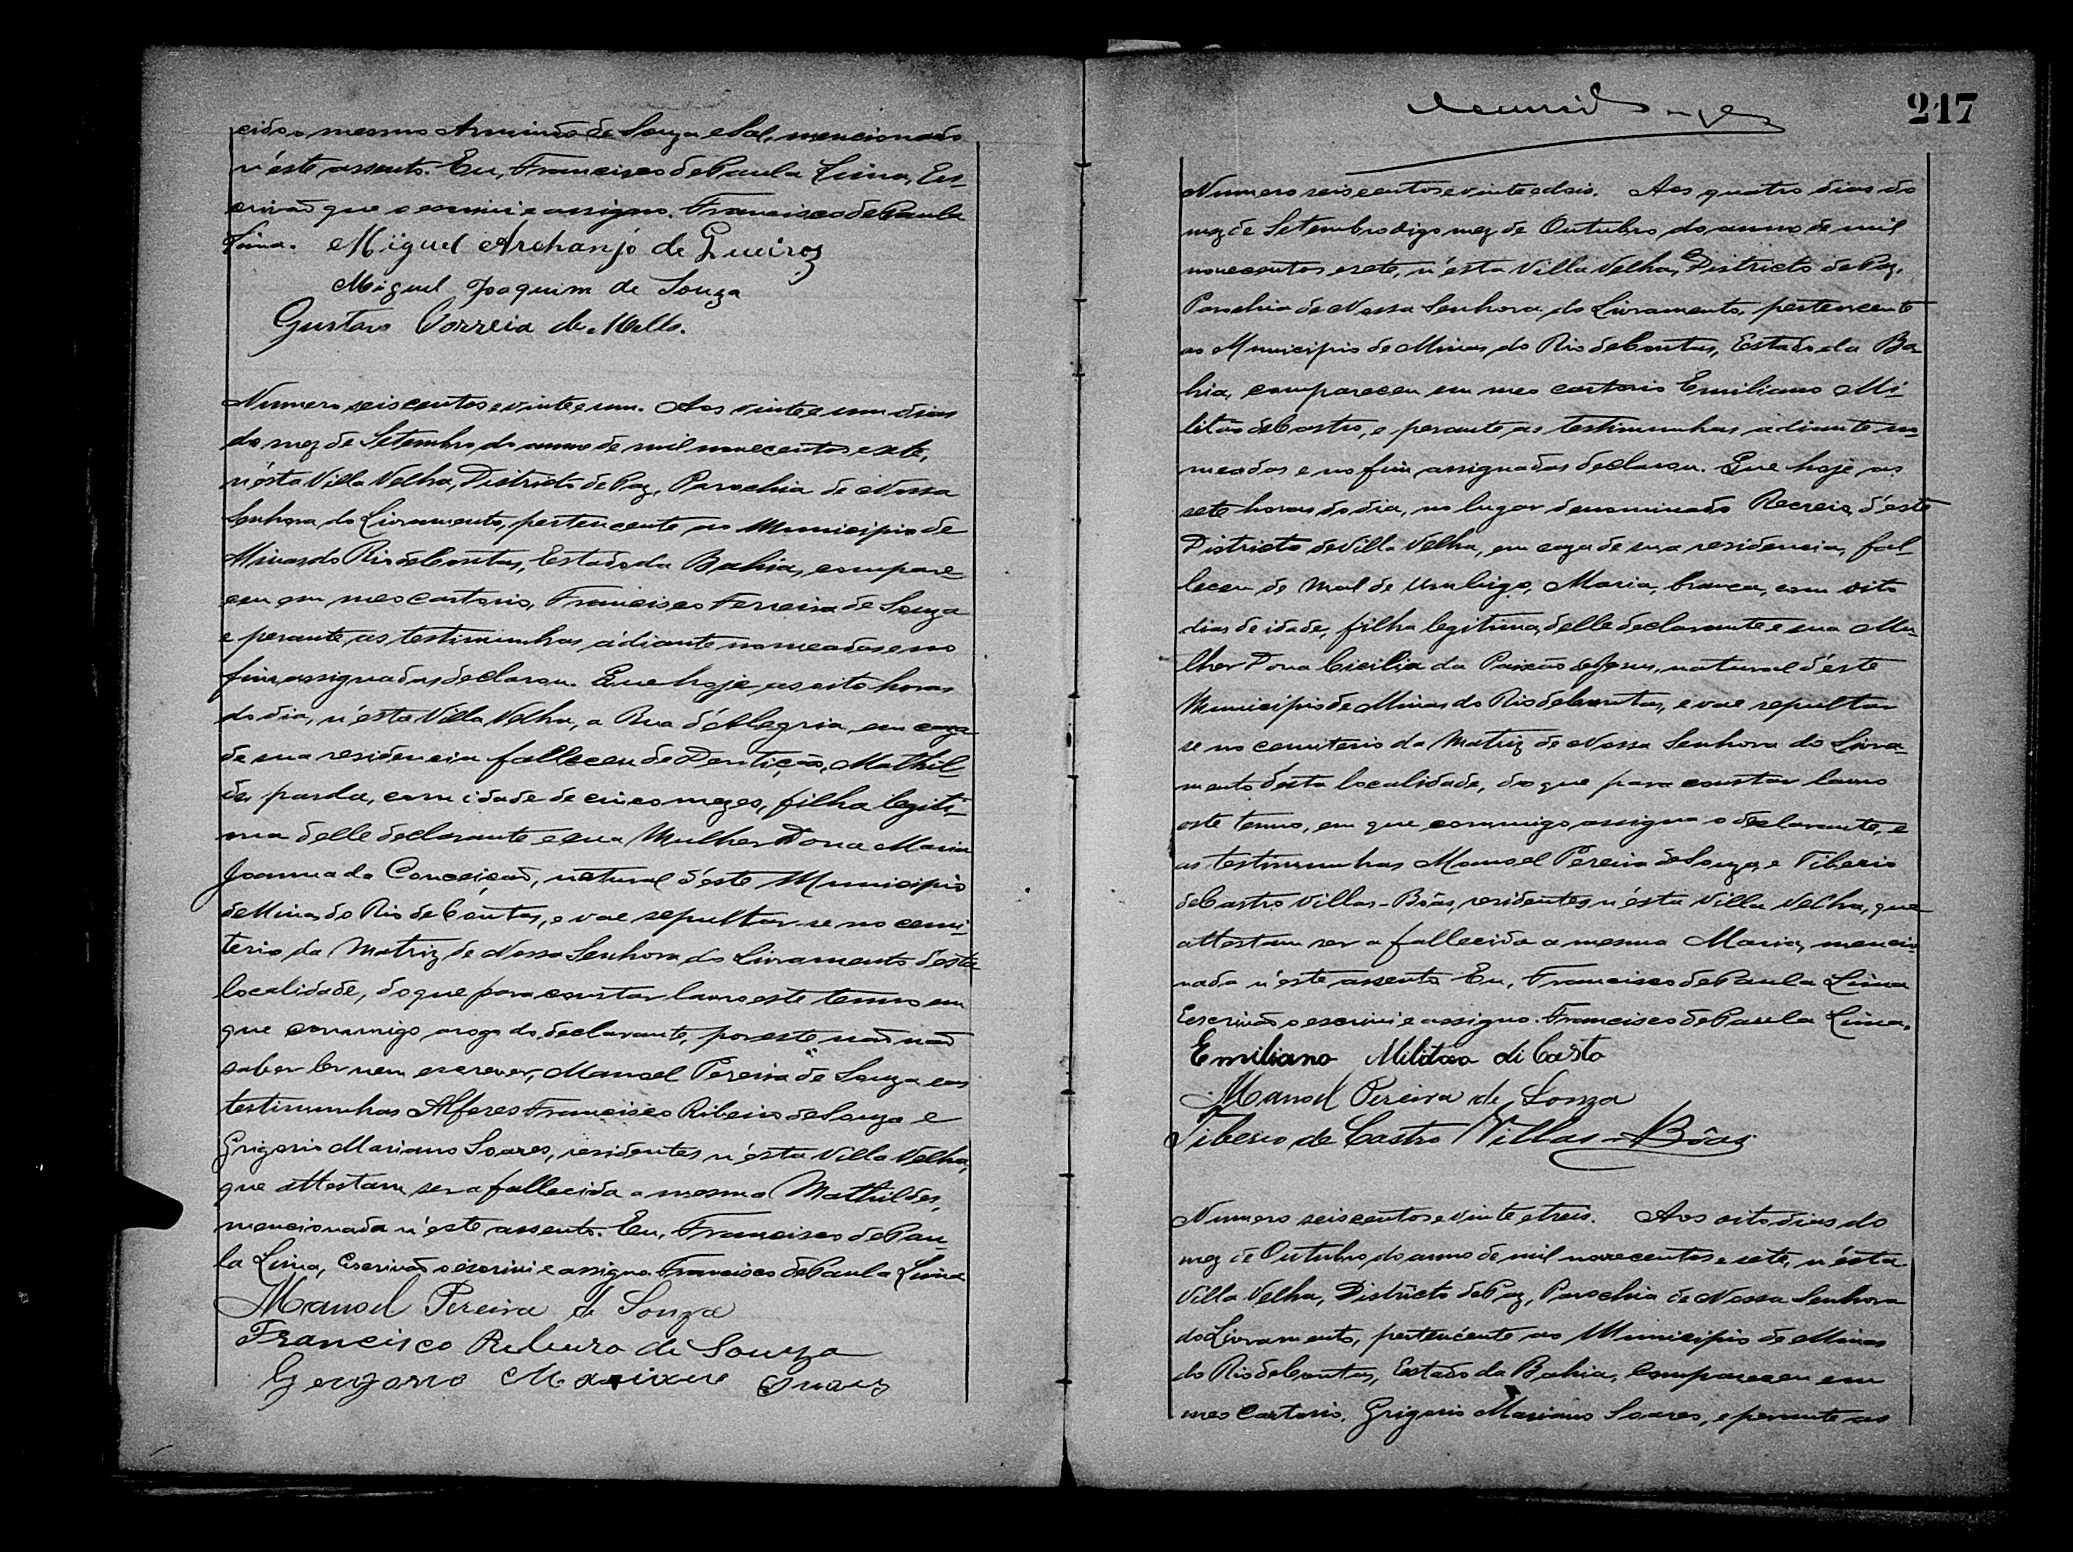 cido o mesmo Armindo de Souza e Sol, mencionado
n'éste assento. Eu, Francisco de Paula Lima, Es-
crivaõ que o escrivi e assigno. Francisco de Paula
Lima. Miguel Archanjo de Queiroz
Miguel Joaquim de Souza
Gustavo Correia de Mello.
Numero seis centos e vinte e um. Aos vinte e um dias
do mez de Setembro do anno de mil novecentos e sete,
n'ésta Villa Velha, Districto de Paz, Parochia de Nossa
Senhora do Livramento, pertencente ao Municipio de
Minas do Rio de Contas, Estado da Bahia, compare-
ceu em meo cartorio, Francisco Ferreira de Souza
e perante as testimunhas ádiante nomeadas e no
fim assignadas declarou. Que hoje, as oito horas
do dia, n'ésta Villa Velha, a Rua d'Alegria, em caza
de sua residencia falleceu de Dentiçaõ, Mathil-
des parda, com idade de cinco mezes, filha legiti-
ma delle declarante e sua Mulher Dona Maria
Joanna da Conceiçaõ, natural d'éste Municipio
de Minas do Rio de Contas, e vae sepultar-se no cemi-
terio da Matriz de Nossa Senhora do Livramento d'ésta
localidade, do que para constar lavro este termo em
que commigo a rogo do declarante, por este naõ naõ
saber ler nem escrever, Manoel Pereira de Souza e as
testimunhas Alferes Francisco Ribeiro de Souza e
Grigorio Mariano Soares, residentes n'ésta Villa Velha,
que attestam ser a fallecida a mesma Mathildes,
mencionada n'éste assento. Eu, Francisco de Pau-
la Lima, Escrivaõ o escrivi e assigno. Francisco de Paula Lima
Manoel Pereira de Souza
Francisco Ribeiro de Souza
Gregorio Mariano Soares
217
Numero seis centos e vinte e dois. Aos quatro dias do
mez de Setembro digo mez de Outubro do anno de mil
novecentos e sete, n'ésta Villa Velha, Districto de Paz,
Parochia de Nossa Senhora do Livramento, pertencente
ao Municipio de Minas do Rio de Contas, Estado da Ba-
hia, compareceu em meo cartorio Emiliano Mi-
litão de Castro, e perante as testimunhas ádiante no-
meadas e no fim assignadas declarou. Que hoje as
sete horas do dia, no lugar denominado Recreio, d'éste
Districto de Villa Velha, em caza de sua residencia, fal-
leceu de Mal de Umbigo, Maria, branca, com oito
dias de idade, filha legitima delle declarante e sua Mu-
lher Dona Cicilia da Paixão de Jesus, natural d'éste
Municipio de Minas do Rio de Contas, e vae sepultar
se no cemiterio da Matriz de Nossa Senhora do Livra-
mento désta localidade, do que para constar lavro
este termo, em que commigo assigna o declarante, e
as testimunhas Manoel Pereira de Souza, e Tiberio
de Castro Villas-Bôas, residentes n'ésta Villa Velha, que
attestam ser a fallecida a mesma Maria, mencio-
nada n'éste assento. Eu, Francisco de Paula Lima
Escrivaõ o escrivi e assigno. Francisco de Paula Lima.
Emiliano Militão di Casto
Manoel Pereira de Souza
Tiberio de Castro Villas-Bôas
Numero seis centos e vinte e treis. Aos oito dias do
mez de Outubro do anno de mil novecentos e sete, n'ésta
Villa Velha, Districto de Paz, Parochia de Nossa Senhora
do Livramento, pertencente ao Municipio de Minas
do Rio de Contas, Estado da Bahia, compareceu em
meo cartorio, Grigorio Mariano Soares, e perante as